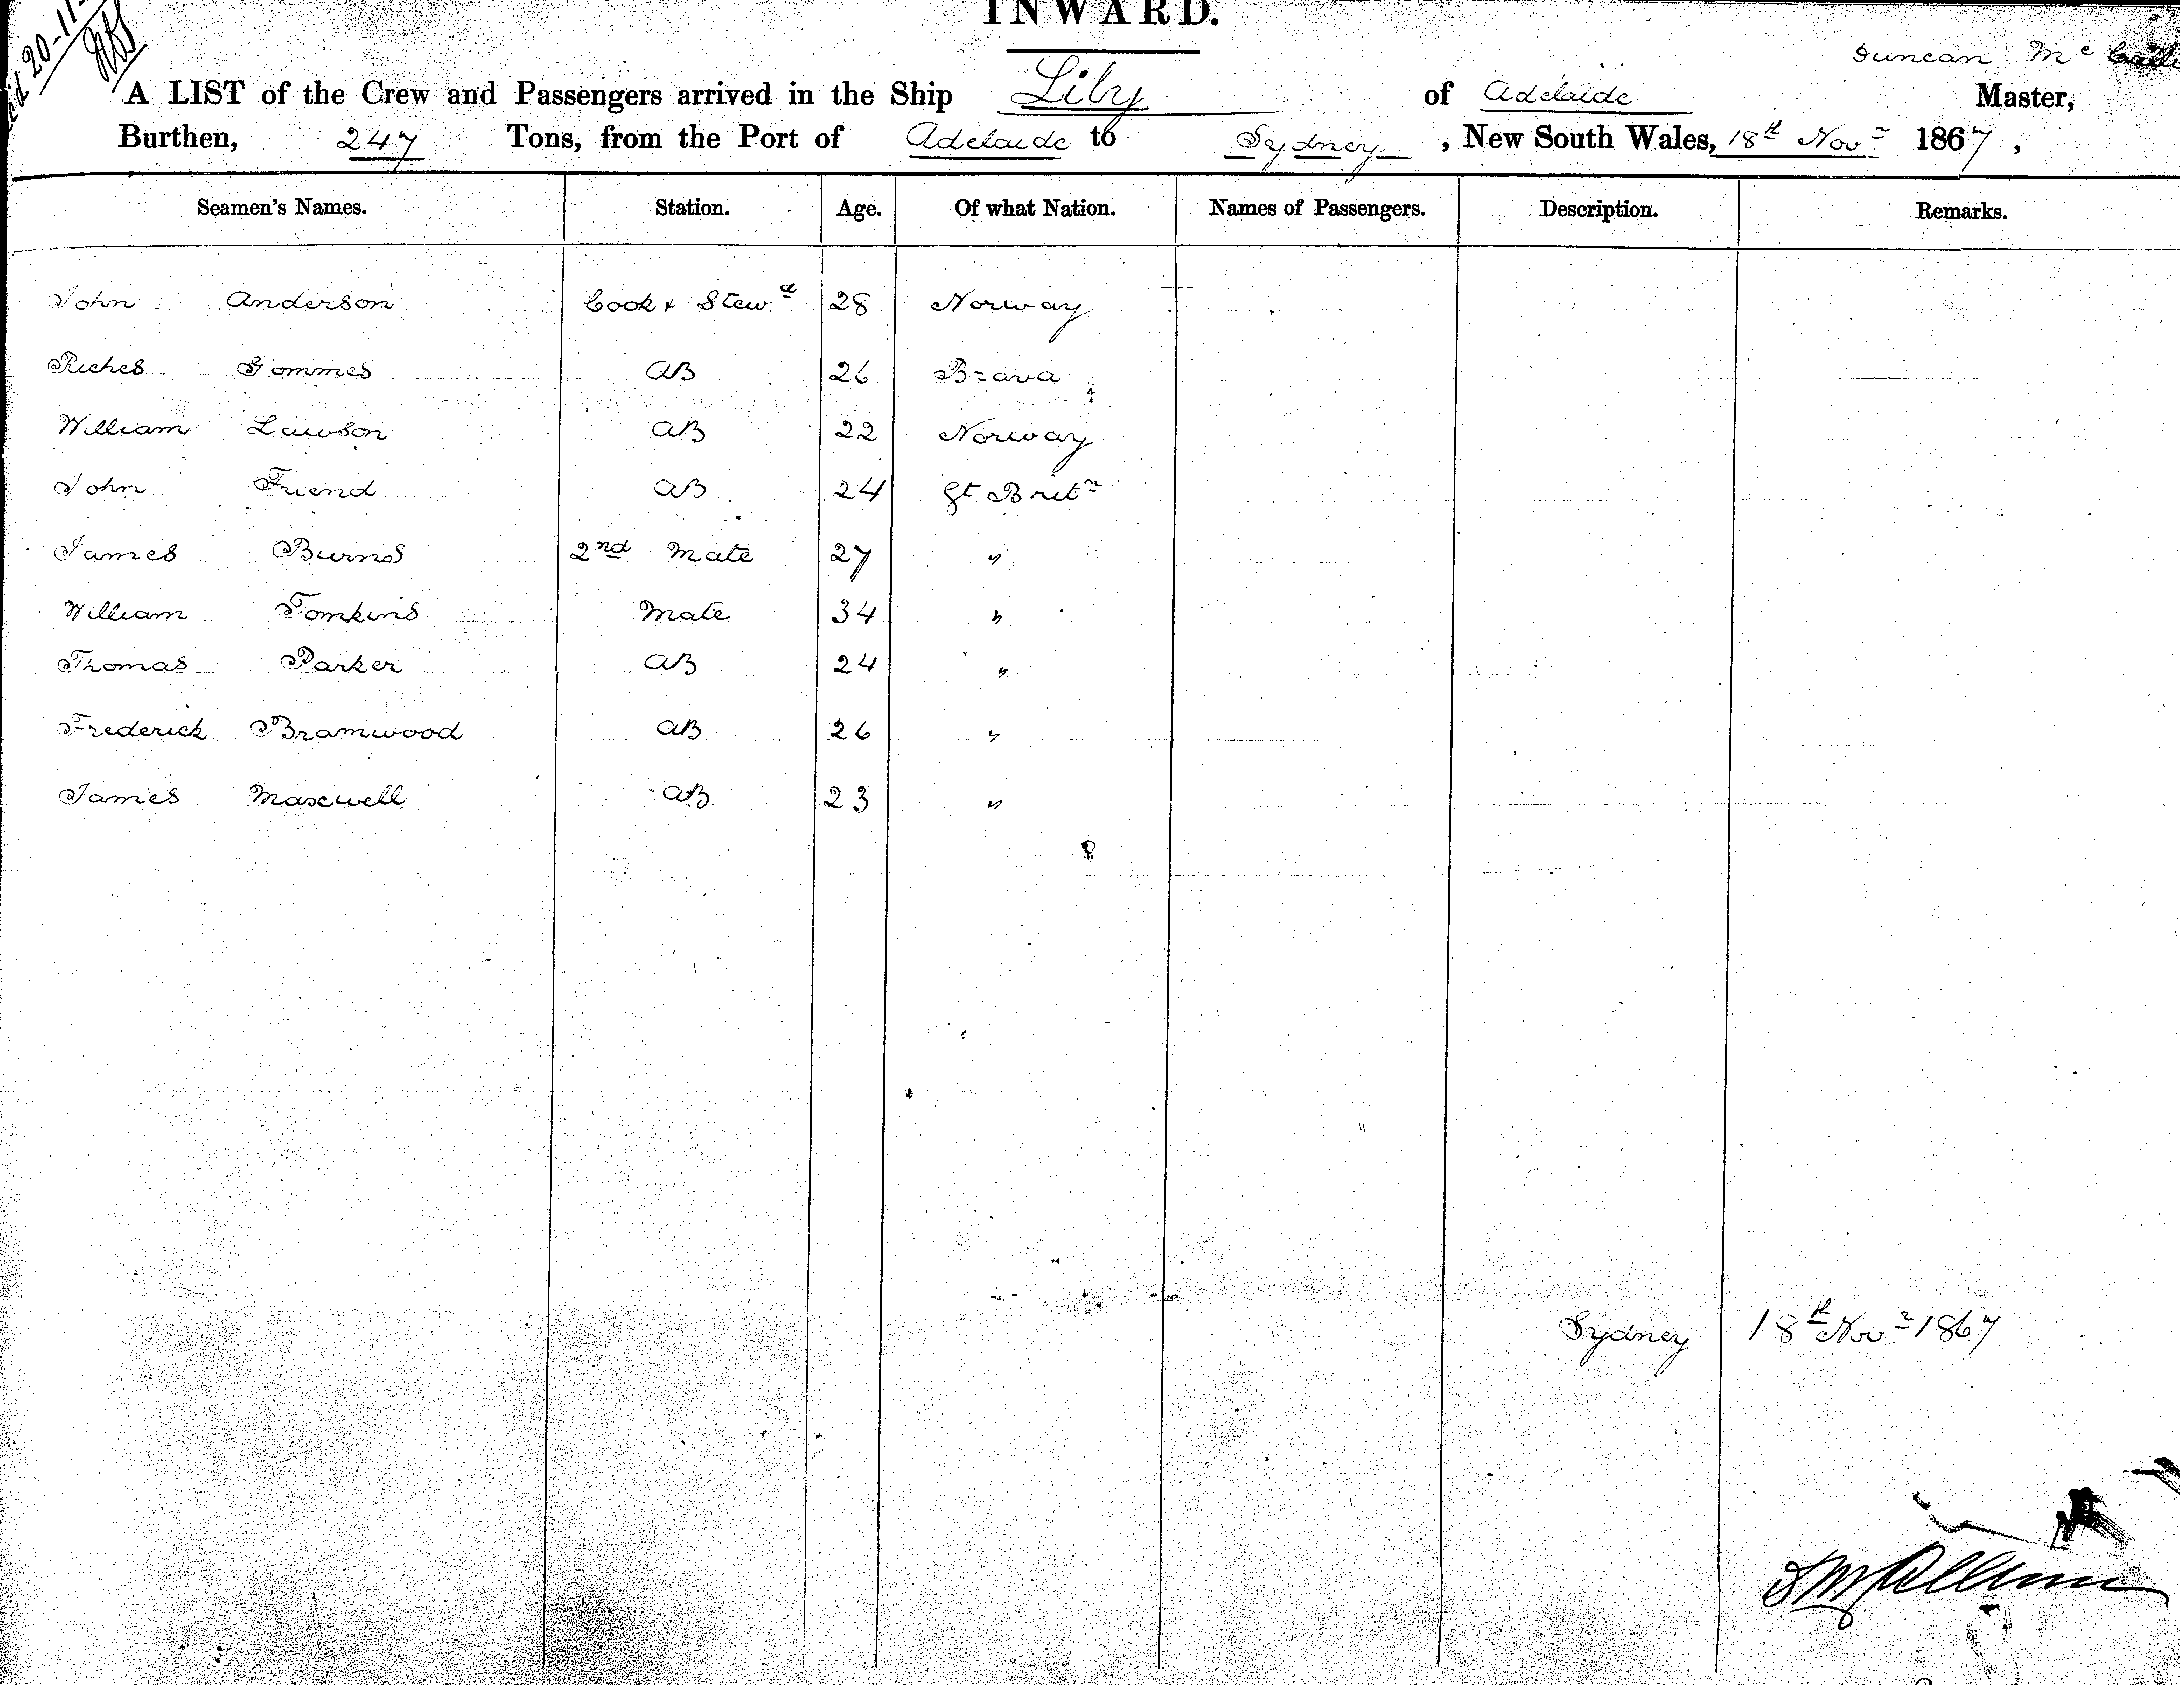 INWARD.
20-11-
Duncan Mc
A LIST of the Crew and Passengers arrived in the Ship Liby of Adelaide Master,
Burthen, 247 Tons, from the Port of Adelaide to Sydney, New South Wales, 18th Novr 1867,
Seamen's Names. Station. Age. Of what Nation. Names of Passengers. Description. Remarks.
John Anderson Cook & Stewd 28 Norway
Riches Gommes AB 26 Brava
William Lawson AB 22 Norway
John Friend AB 24 Gt Britn
James Burns 2nd Mate 27 "
William Tomkins Mate 34 "
Thomas Parker AB 24 "
Frederick Bramwood AB 26 "
James Maxwell AB 23 "
Sydney 18th Novr 1867